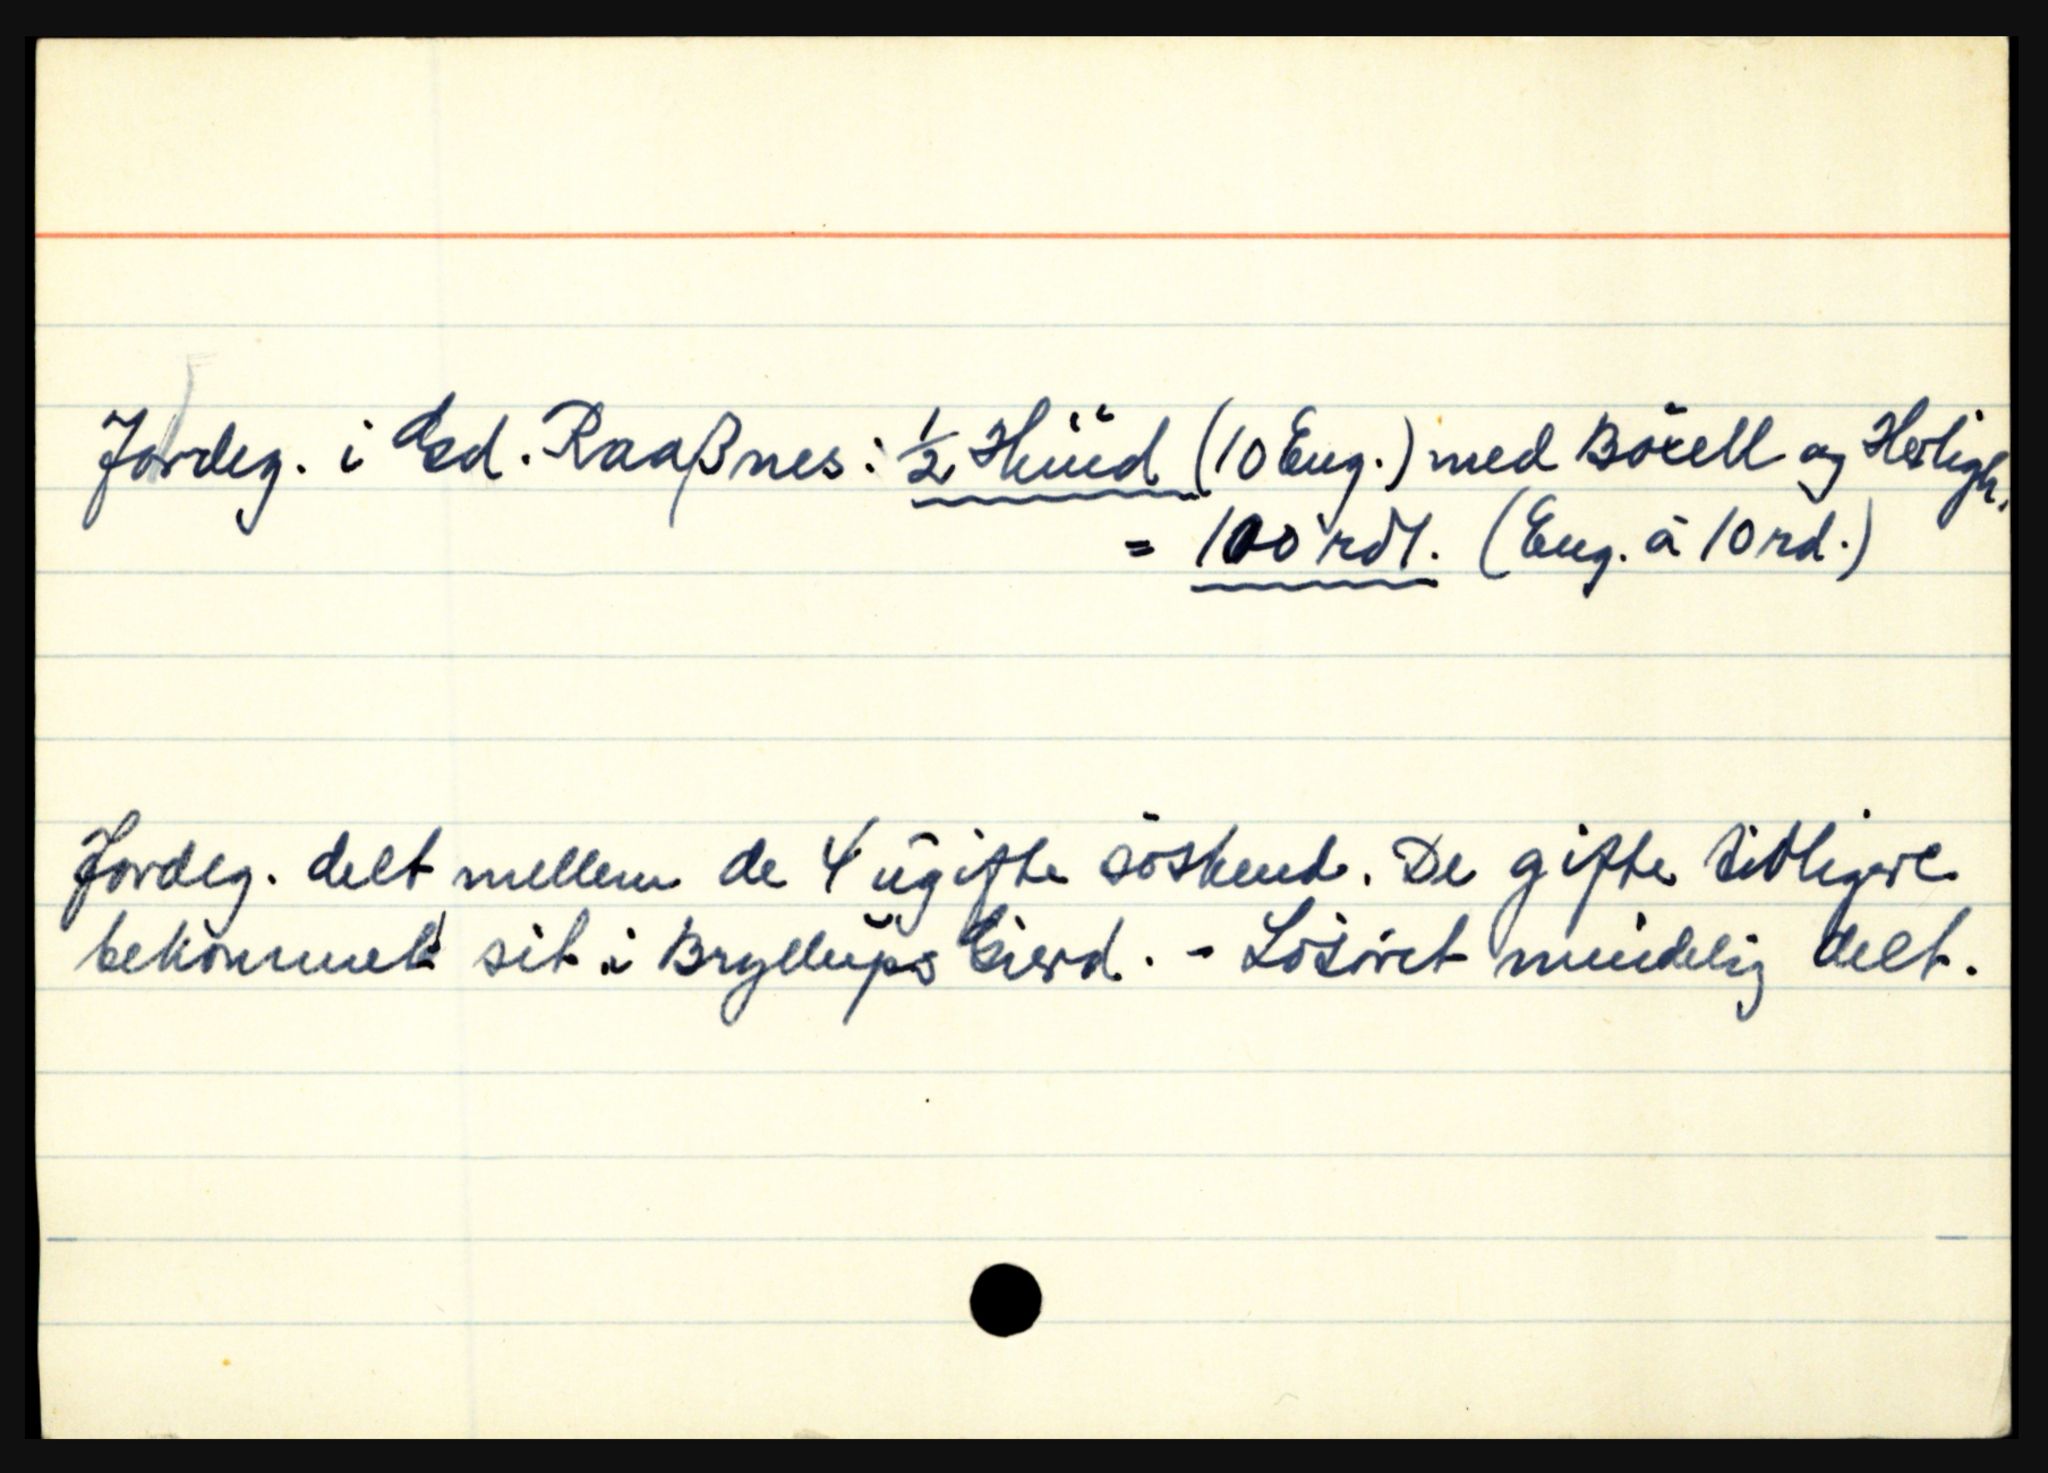 Jordeg. i Ød. Raaßnes: ½ Hüüd (10 Eng.) med Böxell og Herligh.
= 100 rdl. (Eng. á 10 rd.)
Jordeg. delt mellem de 4 ügifte söskend. De gifte tidligere
bekommet sit i Bryllups Gierd. - Lösöret mündelig delt.